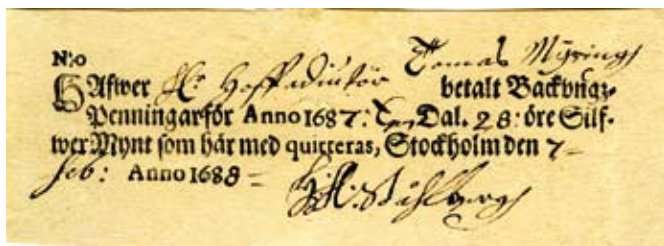 N:o
HAfwer H:r Hoffadiutör Tomas Mÿring
betalt Bäckbngz-
Penningar för Anno 1687: Dal. 28: öre Silf-
wer Mynt som här med quitteras, Stockholm den 7
feb: Anno 1688